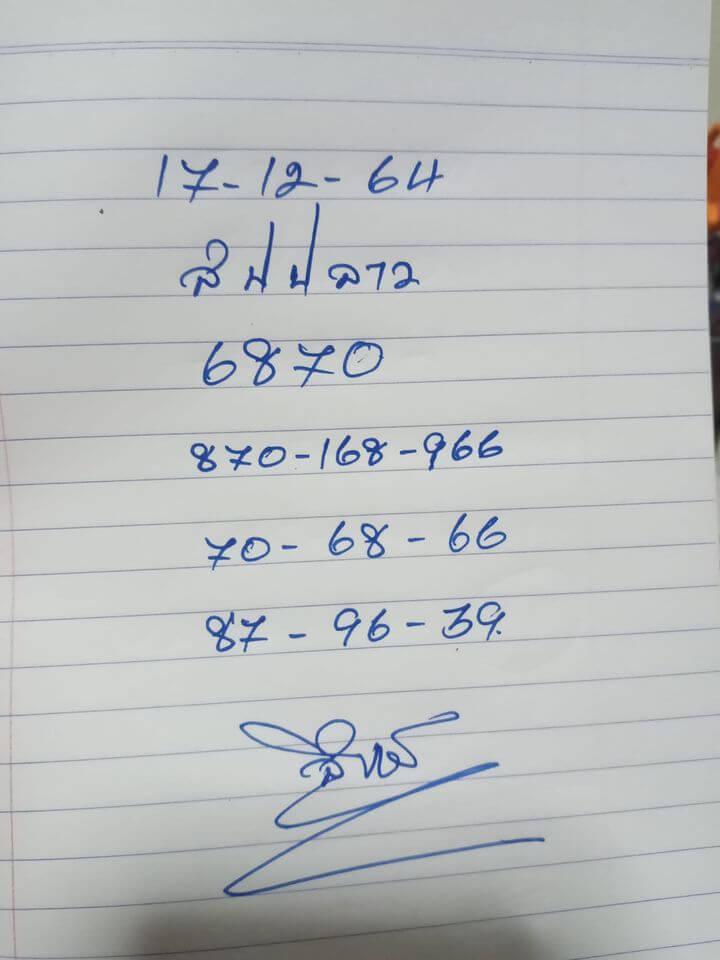 17-12-64
สปปลาว
6870
870-168-966
70-68-66
87-96-39.